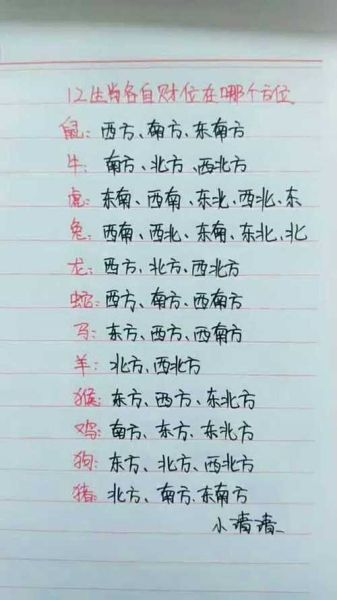 12生肖各自财位在哪个方位
鼠：西方、南方、东南方
牛：南方、北方、西北方
虎：东南、西南、东北、西北、东
兔：西南、西北、东南、东北、北
龙：西方、北方、西北方
蛇：西方、南方、西南方
马：东方、西方、西南方
羊：北方、西北方
猴：东方、西方、东北方
鸡：南方、东方、东北方
狗：东方、北方、西北方
猪：北方、南方、东南方
小清清